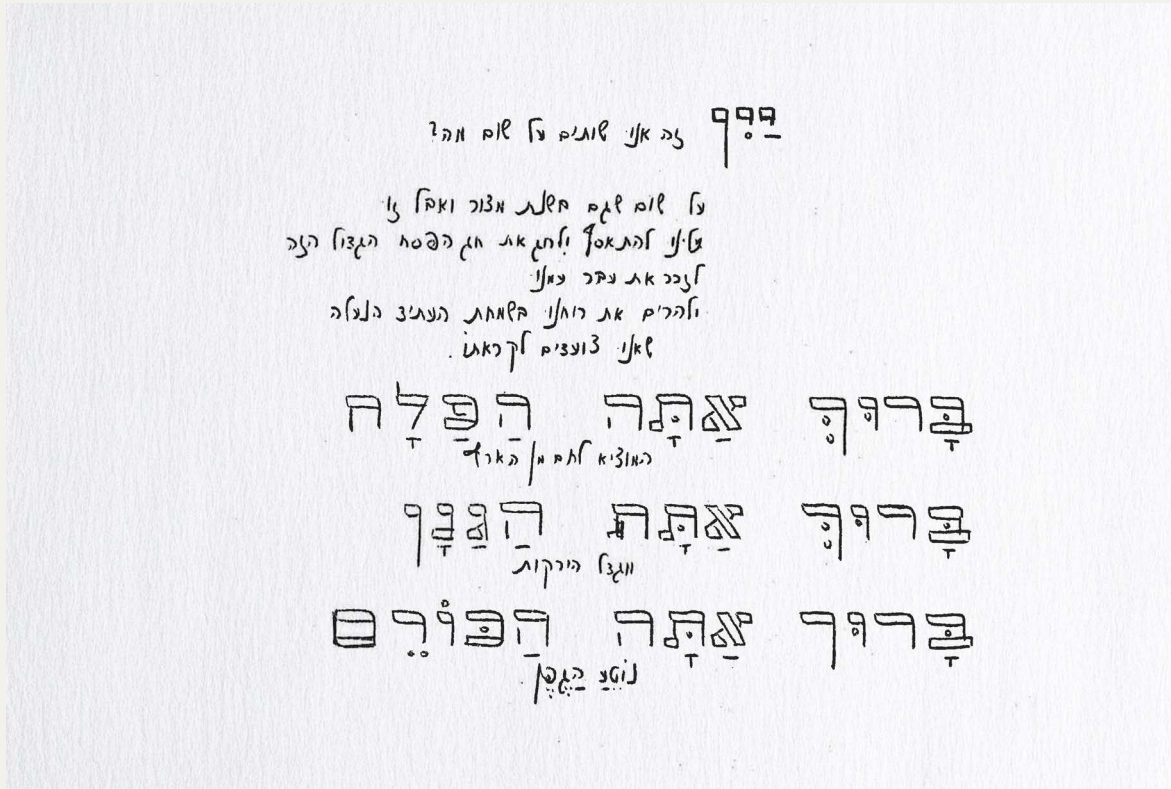 יַיִן זה אנו שותים על שום מה?
על שום שגם בשנת מצור ואבל זו
עלינו להתאסף ולחג את חג הפסח הגדול הזה
לזכר את עבר עמנו
ולהרים את רוחנו בשמחת העתיד הנעלה
שאנו צועדים לקראתו.
בָּרוּךְ אַתָּה הַפַּלָח
המוציא לחם מן הארץ
בָּרוּךְ אַתָּה הַגַּנָּן
מגדל הירקות
בָּרוּך אַתָּה הַכּוֹרֵם
נוֹטֵעַ הַגֶפֶן